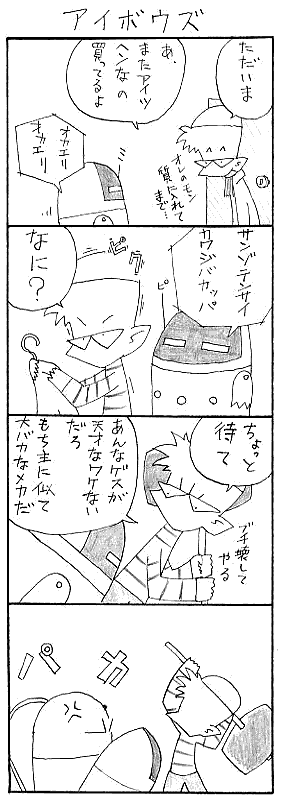 アイボウズ
ただいま
あ、
またアイツ
ヘンなの
買ってるよ
オレのモン
質に入れて
まで…
オカエリ
オカエリ
サンゾ・テンサイ
カワジバカッパ
ピ
ピク
なに?
ちょっと
待て
ブチ壊して
やる
あんなゲスが
天才なワケない
だろ
もち主に似て
大バカなメカだ
パカ